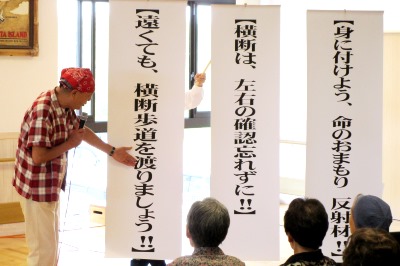 【身に付けよう、命のおまもり 反射材!!】
【横断は、左右の確認忘れずに!!】
【遠くても、横断歩道を渡りましょう!!】